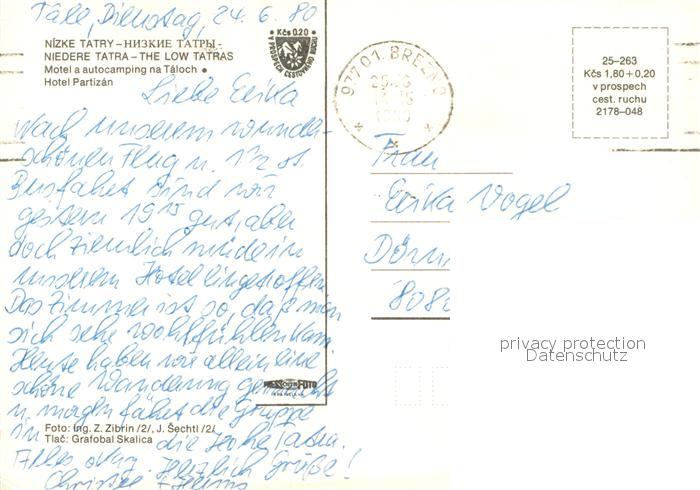 Tále, Dienstag, 24.6.80
NÍZKE TATRY – НИЗКИЕ ТАТРЫ –
NIEDERE TATRA – THE LOW TATRAS
Motel a autocamping na Táloch •
Hotel Partizán
• Kčs 0,20 •
V PROSPECH CESTOVNÉHO RUCHU
977 01 BREZNO
25–263
Kčs 1,80 + 0,20
v prospech
cest. ruchu
2178–048
Liebe Erika
Nach unserem wunder-
schönen Flug u. 1½ st.
Busfahrt sind wir
gestern 19 15 gut, aber
doch ziemlich müde in
unserem Hotel eingetroffen.
Das Zimmer ist so, daß man
sich sehr wohlfühlen kann.
Heute haben wir allein eine
schöne Wanderung gemacht
u. morgen fährt die Gruppe
in die Hohe Tatra.
Alles okay. Herzlich Grüße!
Christel + Heinz
Frau
Erika Vogel
8080
PRESSFOTO
Foto: Ing. Z. Zibrin /2/, J. Šechtl /2/
Tlač: Grafobal Skalica
privacy protection
Datenschutz